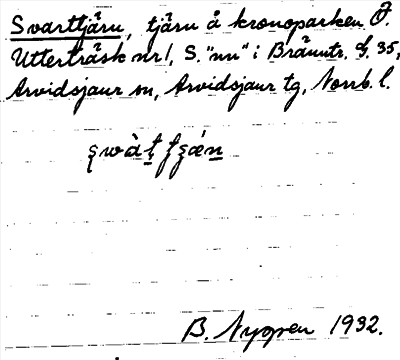 Svarttjärn, tjärn å kronoparken Ö.
Utterträsk nr 1, S. "nn" i Bränntr. G. 35,
Arvidsjaur sn, Arvidsjaur tg, Norrb. l.
B. Nyppen 1932.